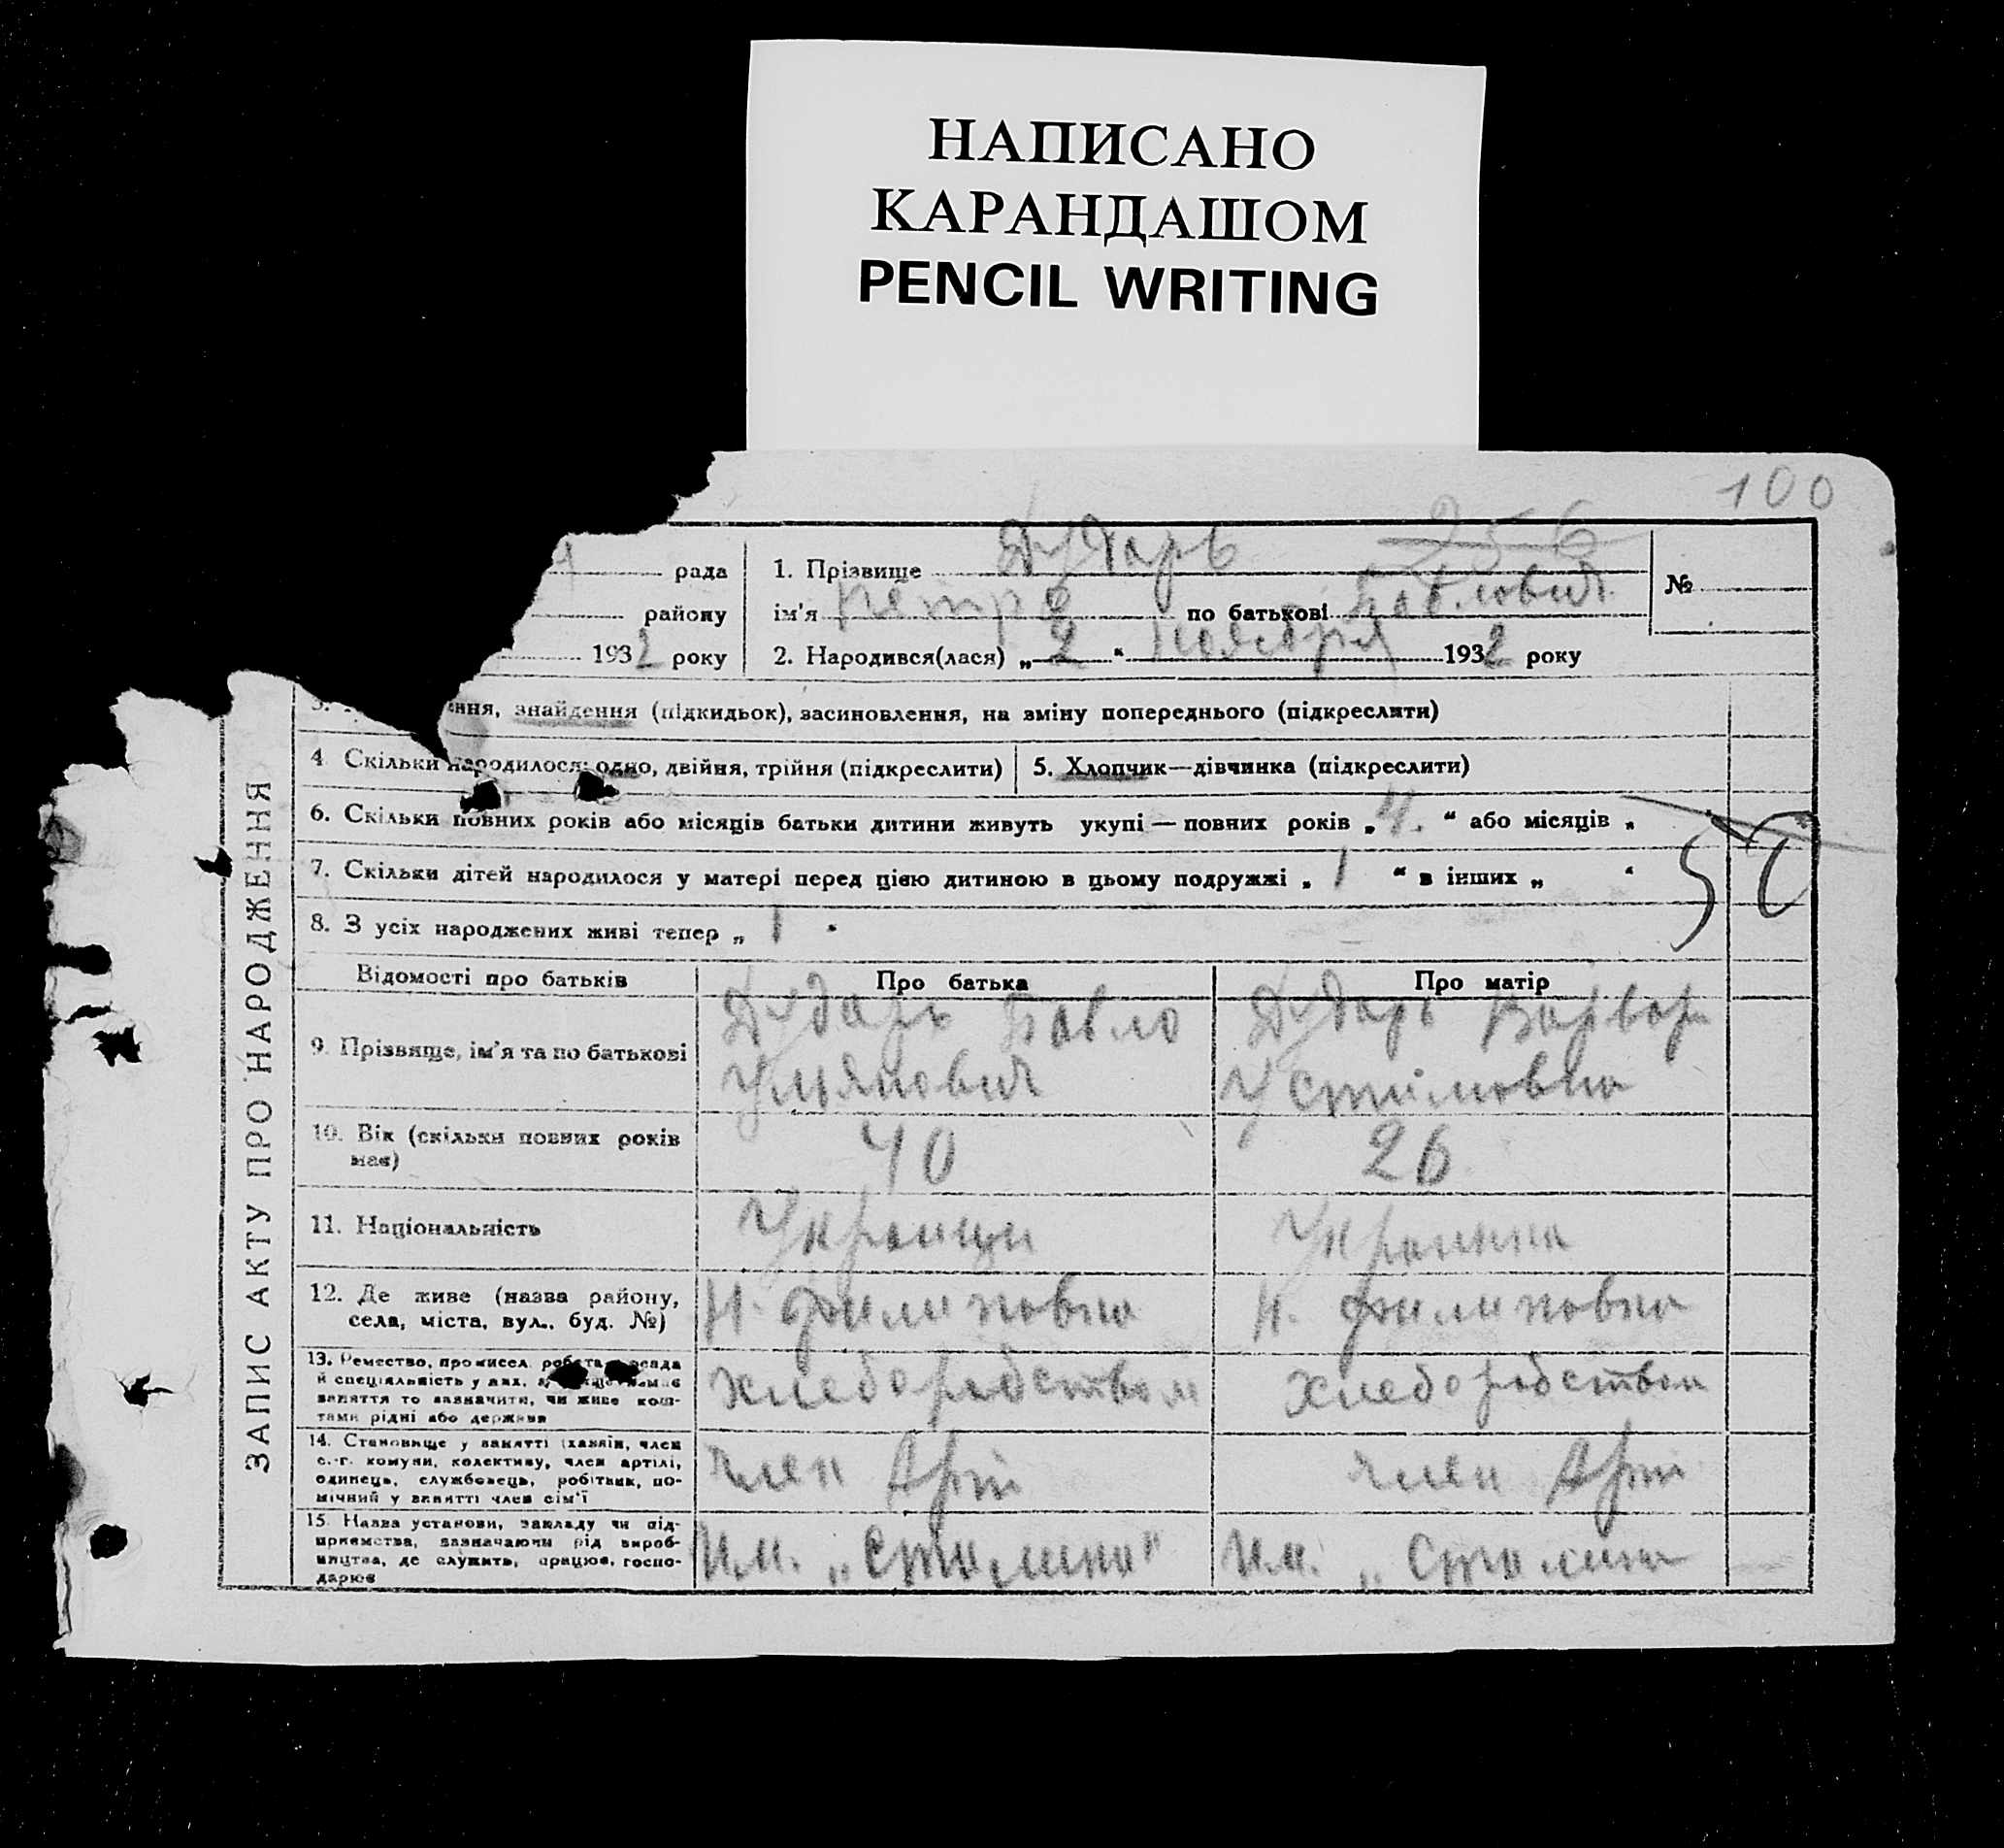 НАПИСАНО
КАРАНДАШОМ
PENCIL WRITING
100
256
рада
району
1932 року
1. Прізвище Дударь
ім'я Петро по батькові Павлович
№
2. Народився(лася) „2“ Ноября 1932 року
ння, знайдення (підкидьок), засиновлення, на зміну попереднього (підкреслити)
4 Скільки народилося: одно, двійня, трійня (підкреслити)
5. Хлопчик—дівчинка (підкреслити)
6. Скільки повних років або місяців батьки дитини живуть укупі — повних років „4.“ або місяців „
7. Скільки дітей народилося у матері перед цією дитиною в цьому подружжі „1“ в інших „ “
8. З усіх народжених живі тепер „1
ЗАПИС АКТУ ПРО НАРОДЖЕННЯ
Відомості про батьків
Про батька
Про матір
9. Прізвище, ім'я та по батькові
Дударь Павло
Ульянович
Дударь Варвара
Устимовна
10. Вік (скільки повних років
має)
40
26
11. Національність
Украинцы
Украинка
12. Де живе (назва району,
села, міста, вул., буд. №)
Н. Филиповка
Н. Филиповка
13. Ремество, промисел, робота, посада
й спеціяльність у них, а якщо немає
заняття то зазначити, чи живе кош-
тами рідні або держави
хлеборобством
хлеборобством
14. Становище у занятті (хазяїн, член
с.-г. комуни, колективу, член артілі,
одинець, службовець, робітник, по-
мічний у занятті член сім'ї
член Арт
член Арт
15. Назва установи, закладу чи під-
приємства, зазначаючи рід вироб-
ництва, де служить, працює, госпо-
дарює
Им. „Сталина"
Им. „Сталина